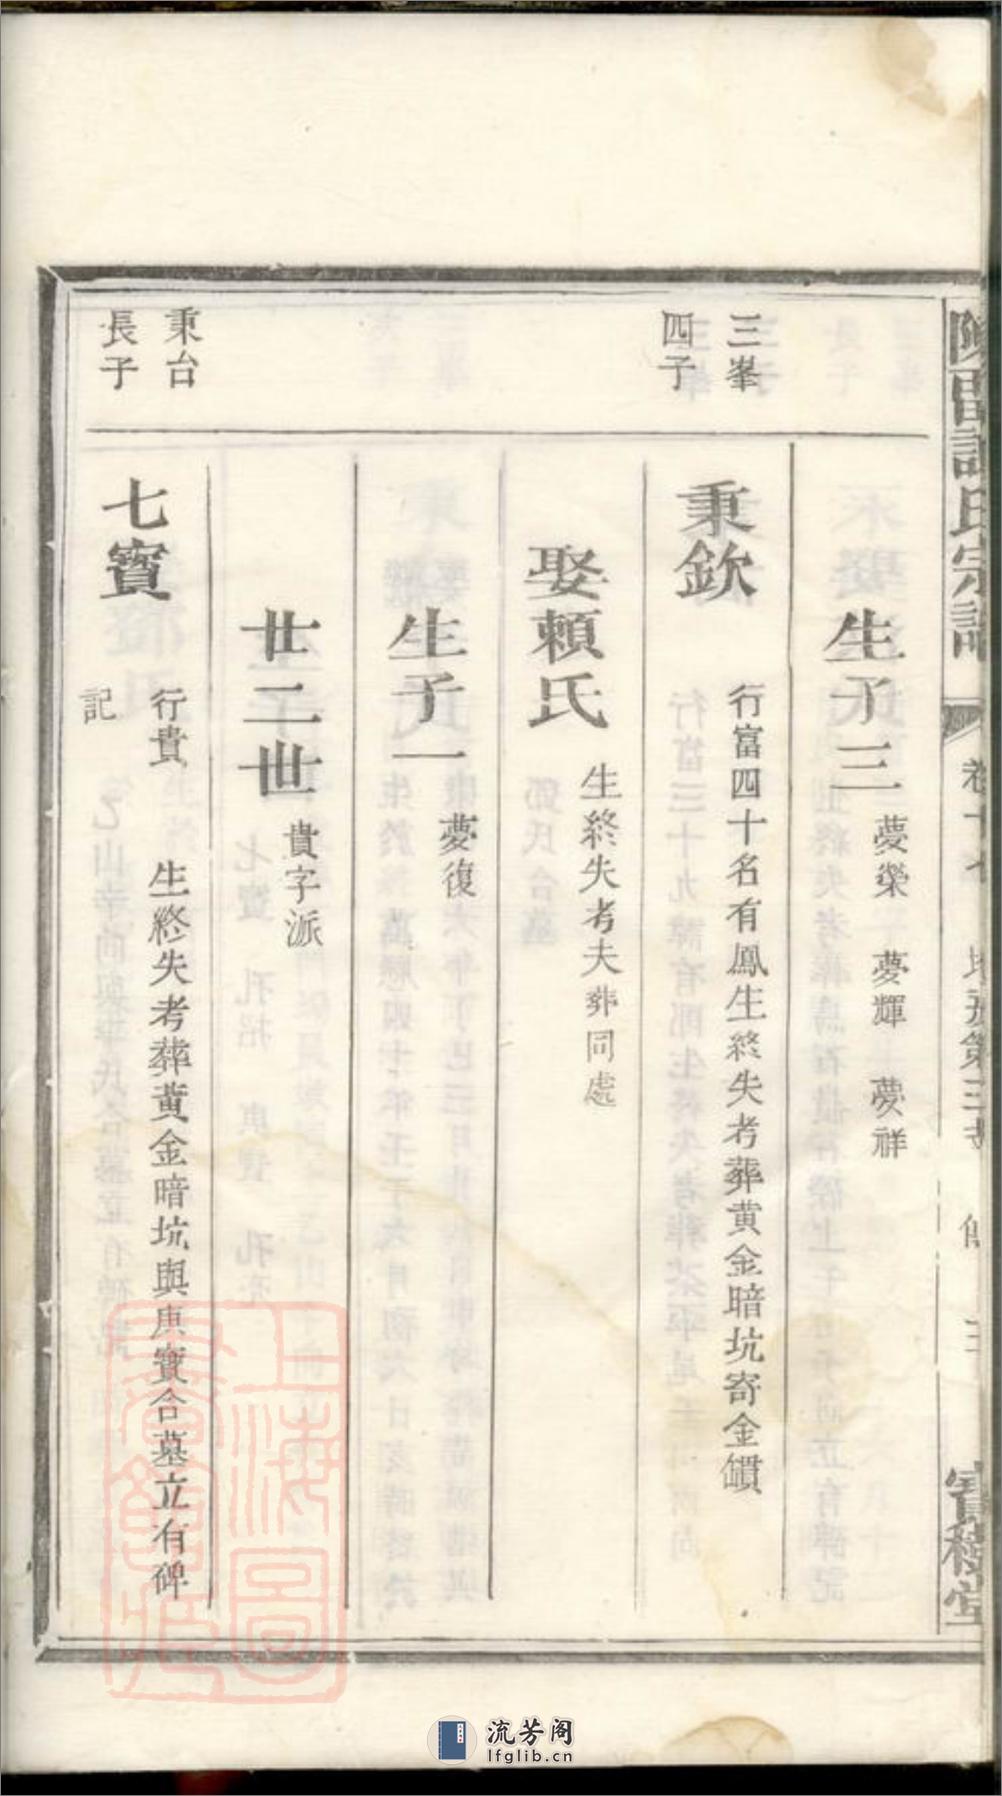 氏宗譜
卷十七
第三
生子三 夢榮 夢輝 夢祥
三峯
四子
秉欽 行富四十名有鳳生終失考葬黄金暗坑寄金鑽
娶賴氏 生終失考夫葬同處
生子一 夢復
廿二世 貴字派
秉台
長子
七寶 行貴 生終失考葬黄金暗坑與庚寶合墓立有碑
記
上海圖書館藏
流芳阁
lfglib.cn